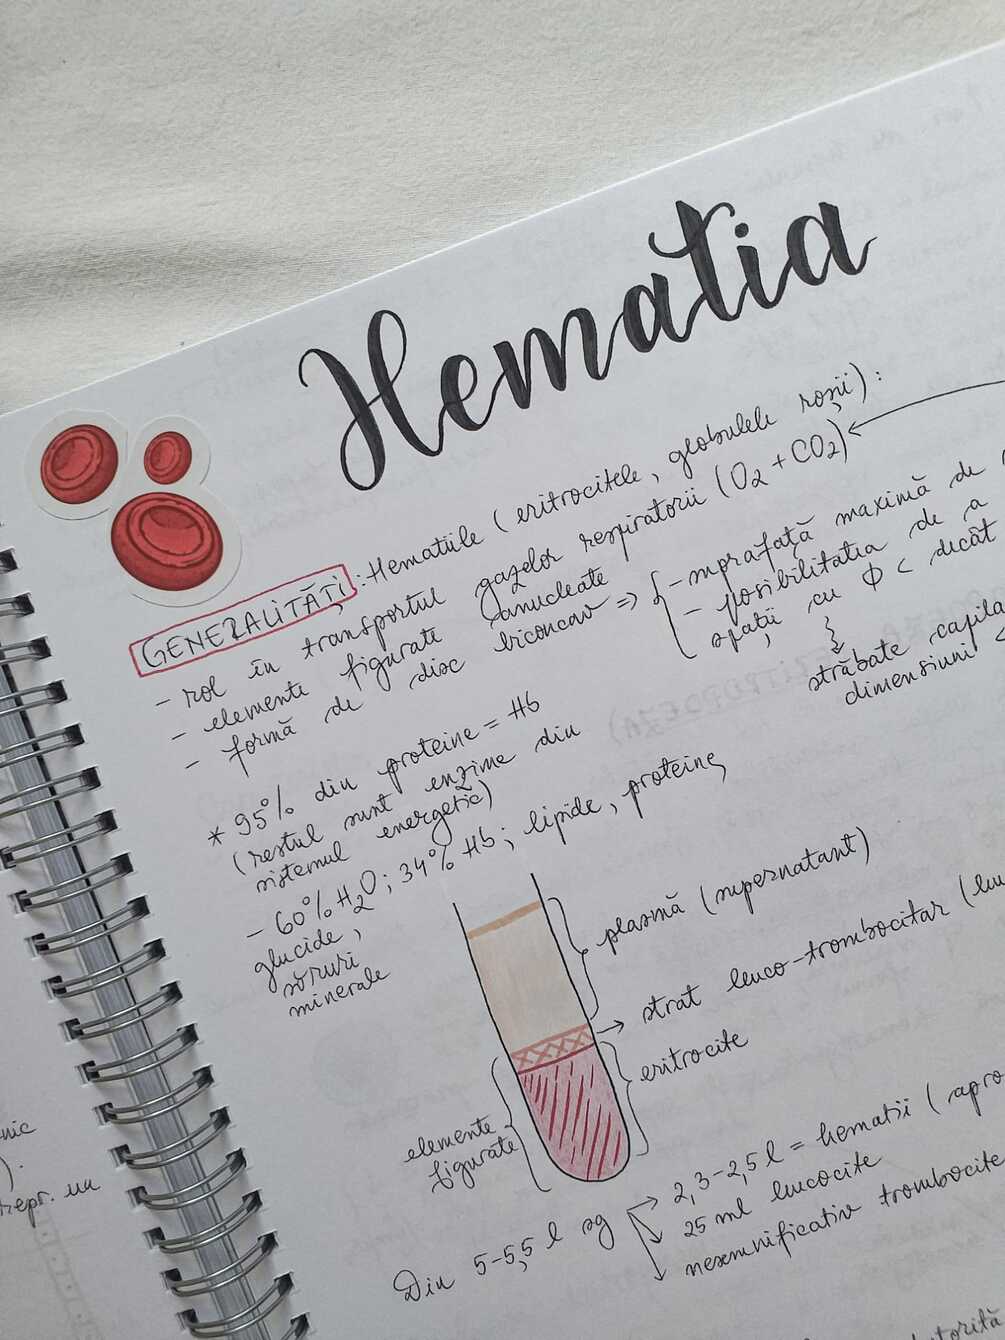 Hematia
GENERALITĂȚI: Hematiile (eritrocitele, globulele roșii):
- rol în transportul gazelor respiratorii (O2 + CO2)
- elemente figurate anucleate
- formă de disc biconcav => { - suprafață maximă de
- posibilitatea de a
spații cu Φ < decât
străbate capila
dimensiuni <
* 95% din proteine = Hb
(restul sunt enzime din
sistemul energetic)
- 60% H2O; 34% Hb; lipide, proteine,
glucide,
săruri
minerale
plasmă (supernatant)
strat leuco-trombocitar (leu
eritrocite
elemente
figurate
Din 5-5,5 l sg → 2,3-2,5 l = hematii (apro
25 ml leucocite
nesemnificativ trombocite
nic
).
repr. un